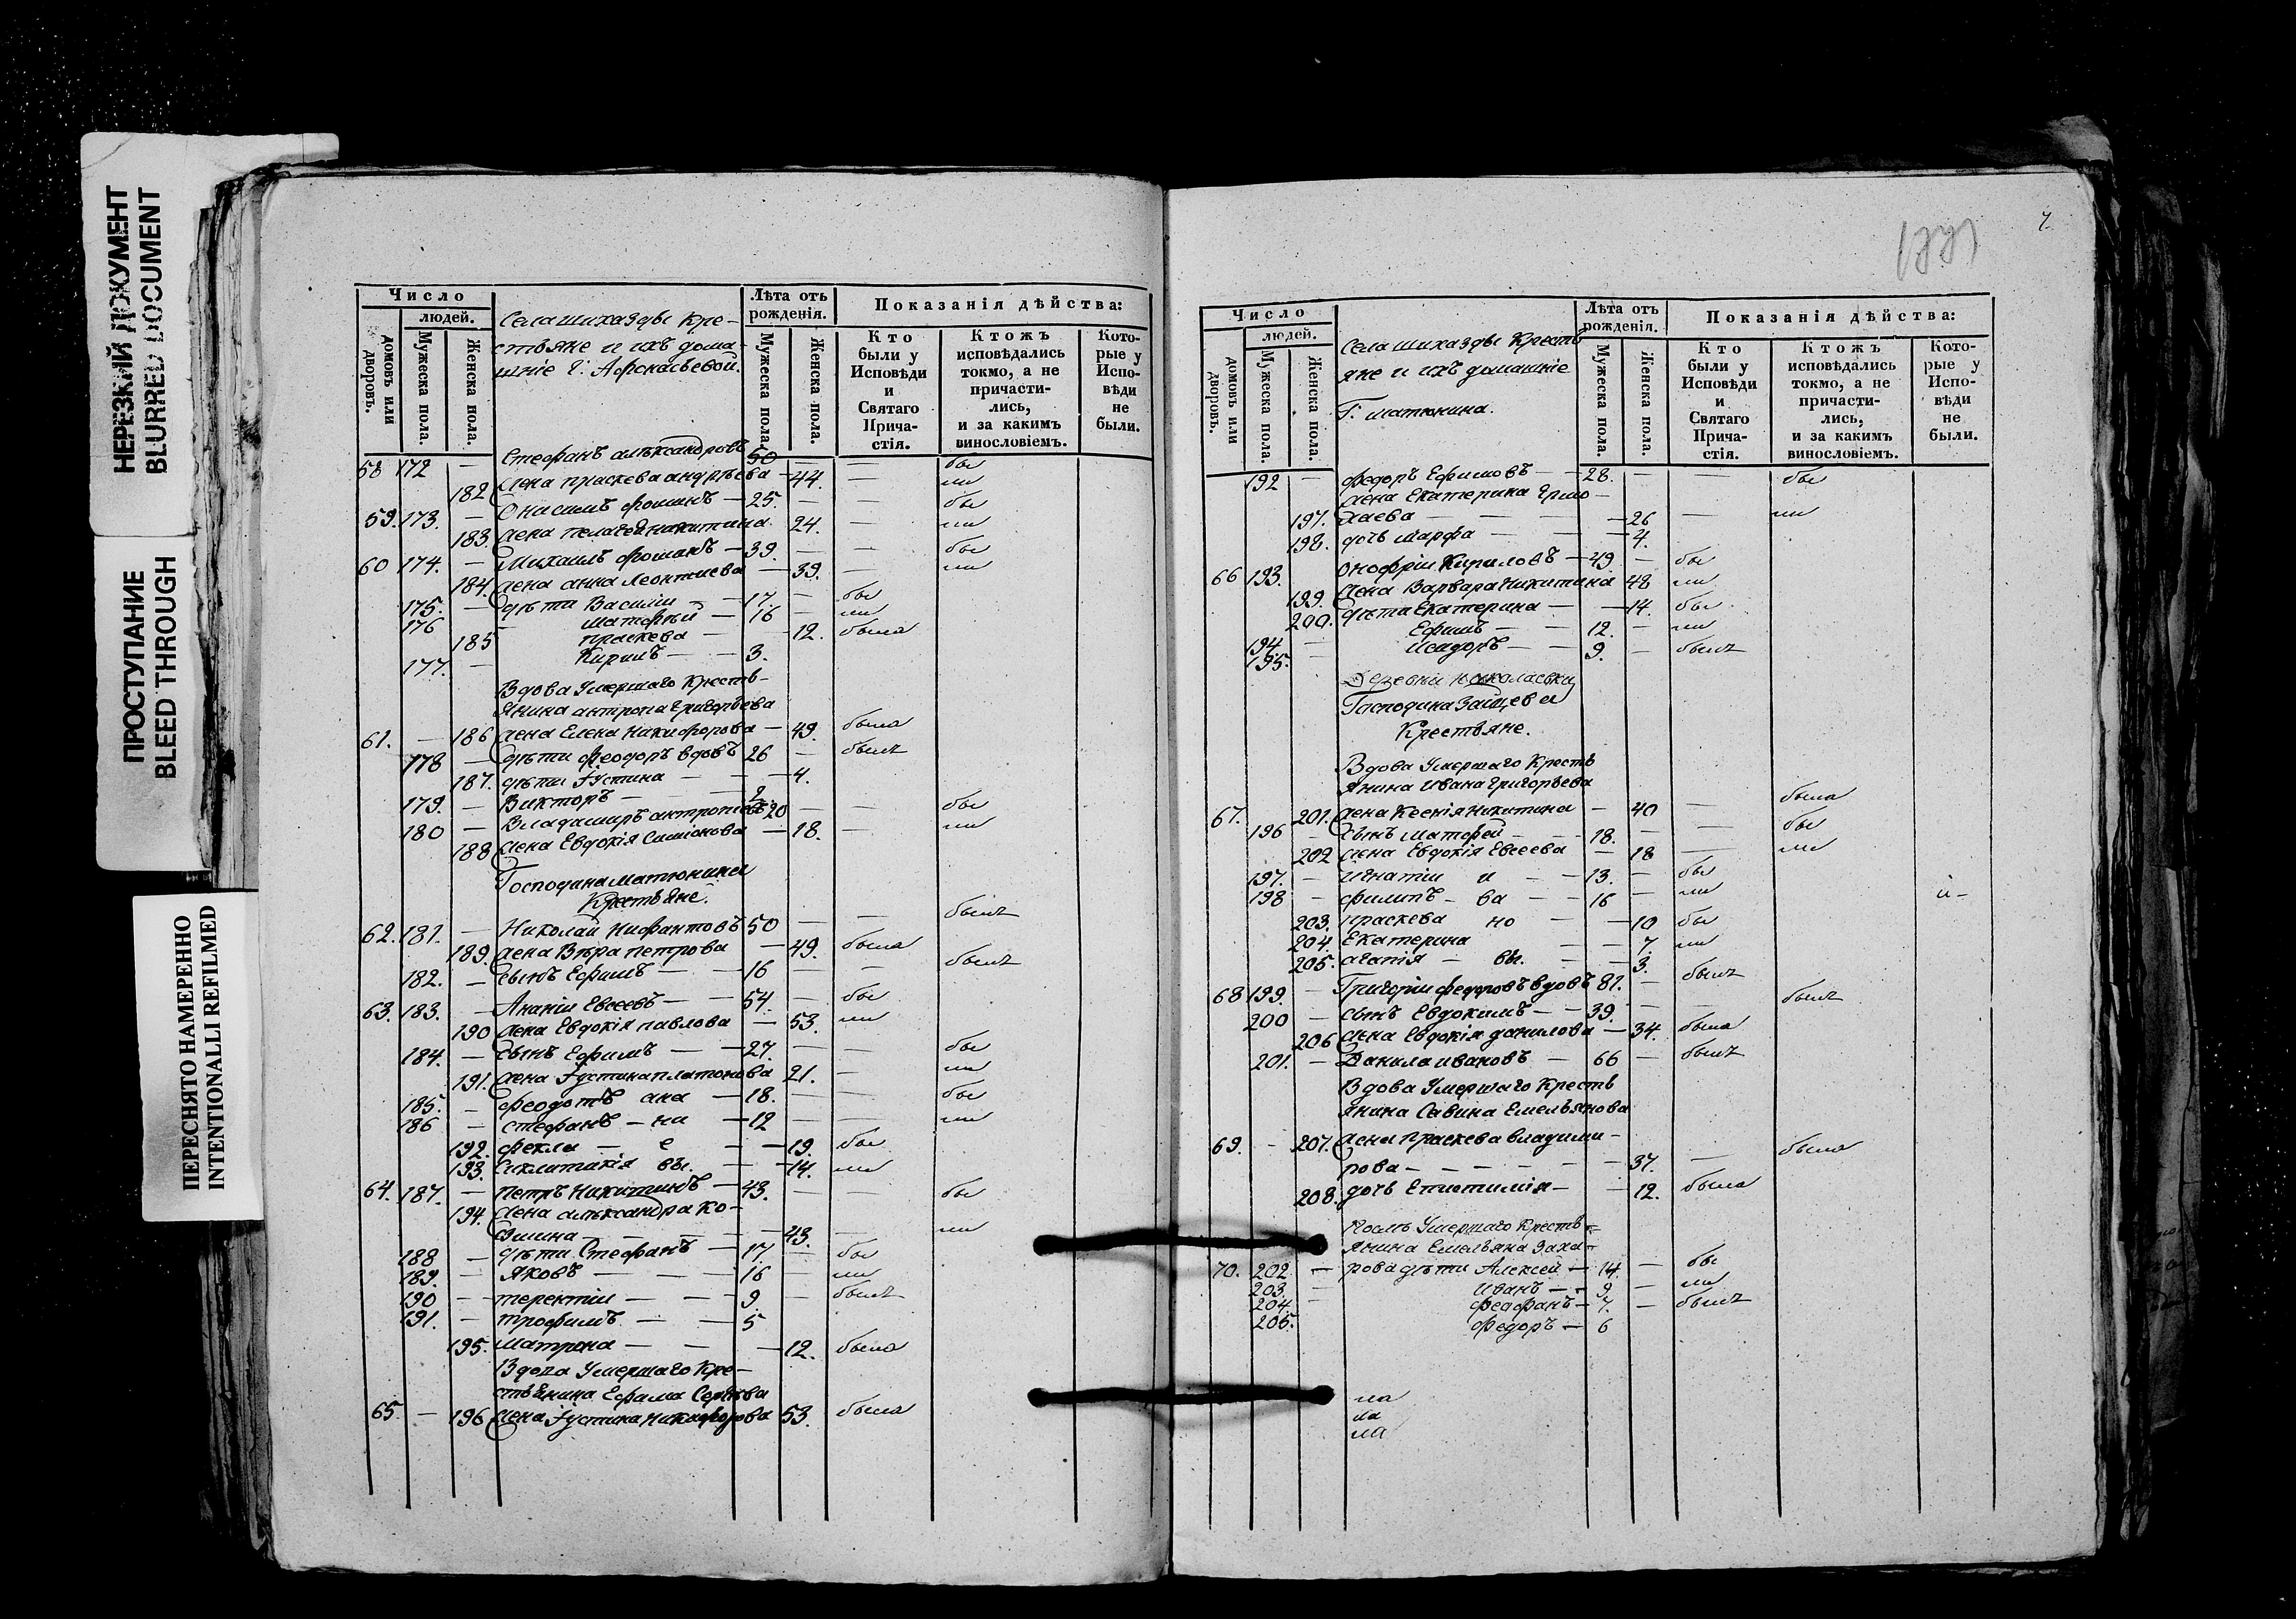 НЕРЕЗКИЙ ДОКУМЕНТ
BLURRED DOCUMENT
ПРОСТУПАНИЕ
BLEED THROUGH
ПЕРЕСНЯТО НАМЕРЕННО
INTENTIONALLI REFILMED
Число
людей.
домовъ или дворовъ.
Мужеска пола.
Женска пола.
Села Шихазды Кре-
стьяне и ихъ дома-
шніе г. Афонасьевой.
Лѣта отъ рожденія.
Мужеска пола.
Женска пола.
Показанія дѣйства:
Кто были у Исповѣди и Святаго Прича- стія.
Ктожъ исповѣдались токмо, а не причасти- лись, и за какимъ винословіемъ.
Кото- рые у Испо- вѣди не были.
58 172 — Стефанъ александровъ 50 — бы
182 жена праскева андрѣева — 44. — ли
59. 173. — Онисимъ фоминъ — 25. — бы
183. жена пелагея никитина 24. — ли
60 174. — Михаилъ фоминъ — 39. — — бы
184. жена анна леонтиева — 39. — ли
175. — дѣти Василіи — 17. — бы
176 матфеий — 16 — ли
185 праскева — 12. была
177. — Кирилъ — — 3.
Вдова Умершаго Кресть-
янина антропа григорьева
61. — 186 жена Елена Никифорова — 49. была
178 — дѣти феодоръ вдовъ 26 — былъ
187. дѣти Іустина — — 4.
179. — Викторъ — — 2.
180 — Владимиръ антроповъ 20 — — бы
188 жена Евдокія Симіонова — 18. — ли
Господина матюнина
Крестьяне.
62. 181. — Николай Нифантовъ 50 — — былъ
189. жена Вѣра петрова — 49. была
182. — сынъ Ефимъ — — 16 — — былъ
63. 183. — Ананіи Евсеевъ — — 54 — бы
190 жена Евдокія павлова — 53. ли
184. — сынъ Ефимъ — — 27. — — бы
191. жена Іустина платонова 21. — ли
185. — феодотъ ана — 18. — — бы
186 — стефанъ — ни — 12 — — ли
192. фекла — е — 19. бы
193. Сиклитикія вы. — 14. ли
64. 187. — петръ Никитинъ — 43. — — бы
194. жена александра ко-
змина — — — — 43. — ли
188 — дѣти Стефанъ — 17. — бы
189. — яковъ — — — 16 ли
190 — терентіи — — 9. — былъ
191. — трофимъ — — 5
195. матрона — — — 12. была
Вдова Умершаго Кре-
стьянина Ефима Сергѣева
65. — 196 жена Іустина Никифорова 53. была
7.
Число
людей.
домовъ или дворовъ.
Мужеска пола.
Женска пола.
Села шихазды Кресть
яне и ихъ домашніе
Г. матюнина.
Лѣта отъ рожденія.
Мужеска пола.
Женска пола.
Показанія дѣйства:
Кто были у Исповѣди и Святаго Прича- стія.
Ктожъ исповѣдались токмо, а не причасти- лись, и за какимъ винословіемъ.
Кото- рые у Испо- вѣди не были.
192 — федоръ Ефимовъ — 28. — — бы
жена Екатерина Ермо-
197. лаева — — — — 26 — ли
198. дочь марфа — — — 4.
66 193. онофріи Кириловъ — 49 — бы
199. жена Варвара Никитина 48 ли
200. дѣти Екатерина — — 14. бы
194 — Ефимъ — — 12. — ли
195. Исидоръ — — 9. — былъ
Деревни николаевки
Господина Зайцева
Крестьяне.
Вдова Умершаго Кресть
янина Ивана григорьева
67. 201. жена Ксенія Никитина — 40 — была
196 — сынъ матфей — — 18. — — бы
202 жена Евдокія Евсеева — 18 — ли
197. — Игнатіи и — — 13. — бы
198 — филипъ — ва — 16 — ли
203. праскева но — — 10 бы
204. Екатерина — — 7. ли
205. агапія — вы. — 3.
68 199. — Григорій федоровъ вдовъ 81. — былъ
200 — сынъ Евдокимъ — — 39. — — былъ
206 жена Евдокія данилова — 34. была
201. — Данила ивановъ — 66 — былъ
Вдова Умершаго Кресть
янина Савина Емельянова
69. — 207. жена праскева владими-
рова — — — — — 37. — была
208. дочь Епистимія — — 12. была
Послѣ Умершаго Кресть-
янина Емельяна Заха-
70. 202 — рова дѣти Алексей — 14. — бы
203. — Иванъ — — 9 — ли
204. феофанъ — 7. — былъ
205. федоръ — 6
ла
ла
ла